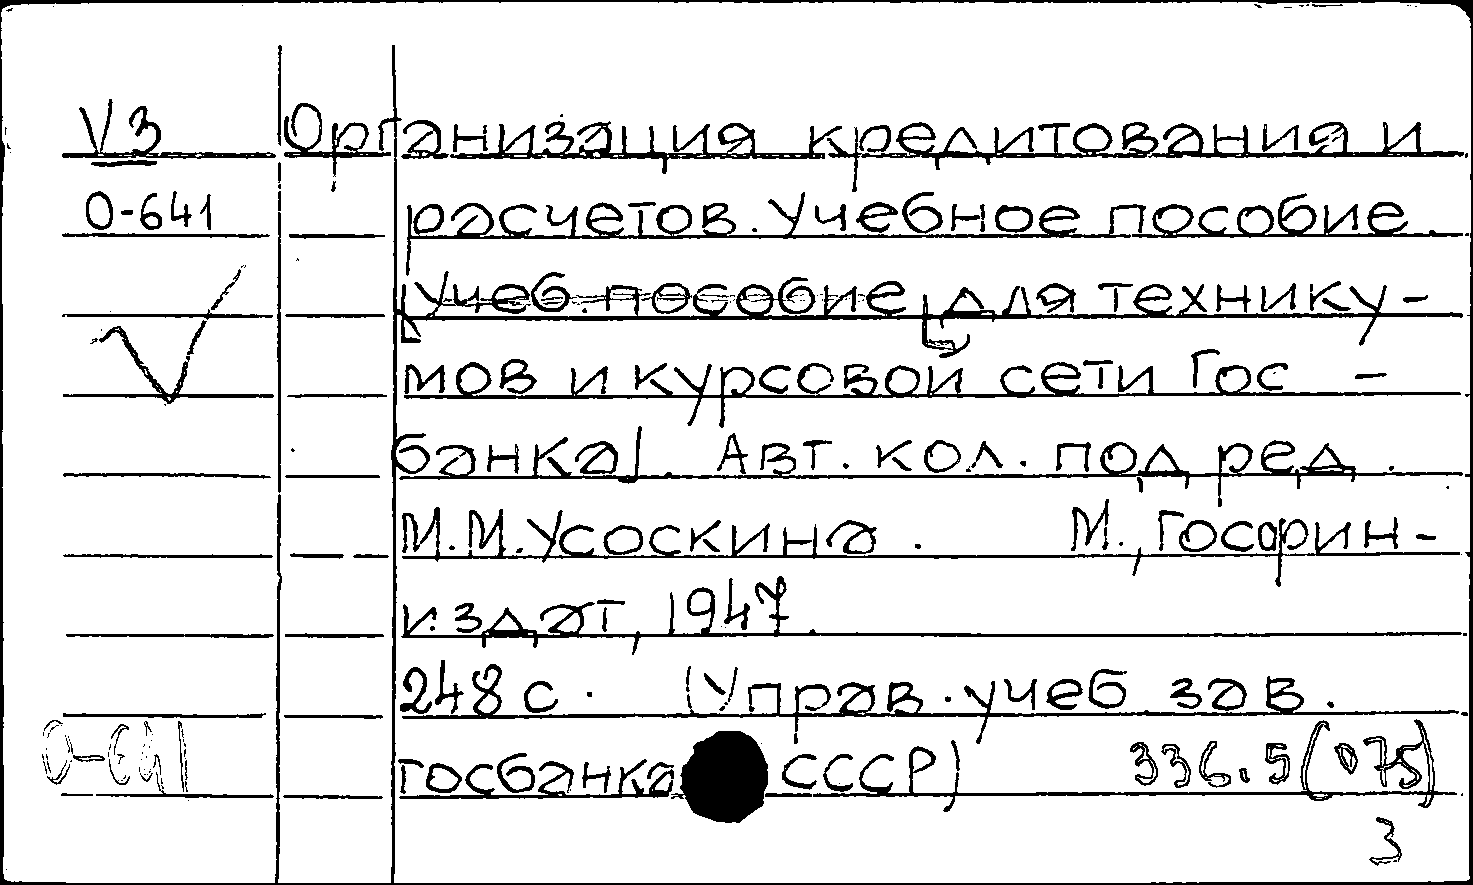 V3 Организация кредитования и
О-641 расчетов. Учебное пособие.
[Учеб. пособие] для технику-
мов и курсовой сети Гос-
банка]. Авт. кол. под ред.
М.М. Усоскина. М., Госфин-
издат, 1947.
248 с. (Управ. учеб. зав.
О-641 госбанка СССР) 336.5(075)
3